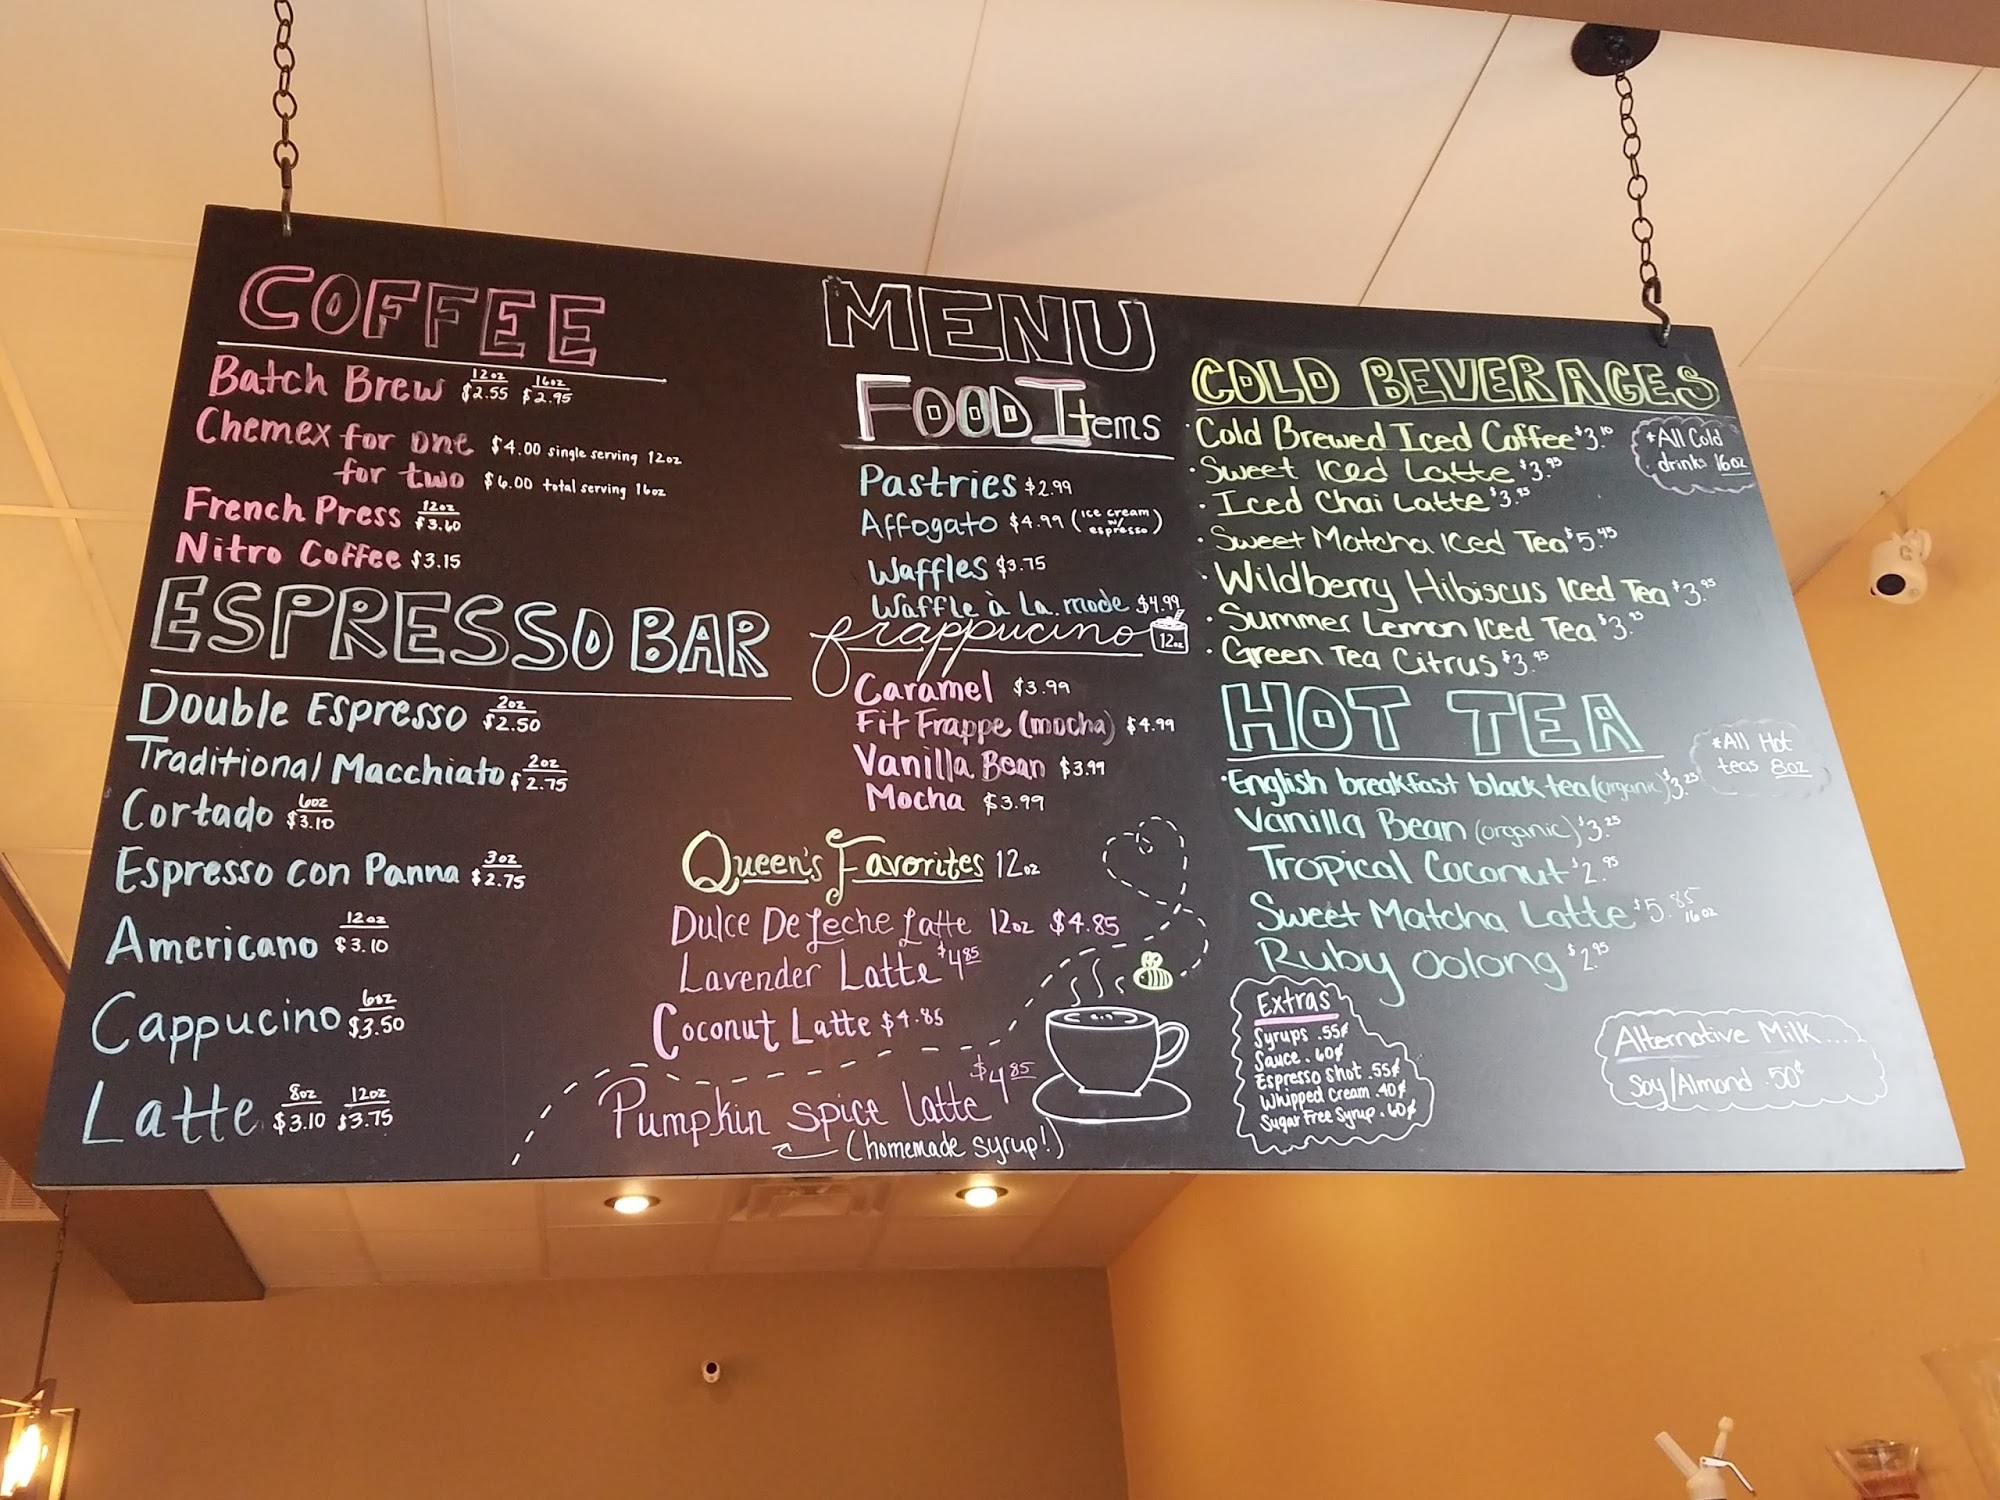 COFFEE
Batch Brew 12oz $2.55 16oz $2.95
Chemex for one $4.00 single serving 12oz
for two $6.00 total serving 16oz
French Press 12oz $3.60
Nitro Coffee $3.15
ESPRESSO BAR
Double Espresso 2oz $2.50
Traditional Macchiato 2oz $2.75
Cortado 6oz $3.10
Espresso con Panna 3oz $2.75
Americano 12oz $3.10
Cappucino 6oz $3.50
Latte 8oz $3.10 12oz $3.75
MENU
FOOD Items
Pastries $2.99
Affogato $4.99 (ice cream w/ espresso)
Waffles $3.75
Waffle à la mode $4.99
frappucino 12oz
Caramel $3.99
Fit Frappe (mocha) $4.99
Vanilla Bean $3.99
Mocha $3.99
Queen's Favorites 12oz
Dulce De Leche Latte 12oz $4.85
Lavender Latte $4.85
Coconut Latte $4.85
Pumpkin spice latte $4.85
(homemade syrup!)
COLD BEVERAGES
· Cold Brewed Iced Coffee $3.10
· Sweet Iced Latte $3.95
· Iced Chai Latte $3.95
· Sweet Matcha Iced Tea $5.45
· Wildberry Hibiscus Iced Tea $3.95
· Summer Lemon Iced Tea $3.95
· Green Tea Citrus $3.95
*All Cold
drinks 16oz
HOT TEA
*All Hot
teas 8oz
· English breakfast black tea (organic) $3.25
Vanilla Bean (organic) $3.25
Tropical Coconut $2.95
Sweet Matcha Latte $5.85 16oz
Ruby Oolong $2.95
Extras
Syrups .55¢
Sauce .60¢
Espresso Shot .55¢
Whipped Cream .40¢
Sugar Free Syrup .60¢
Alternative Milk...
Soy/Almond .50¢